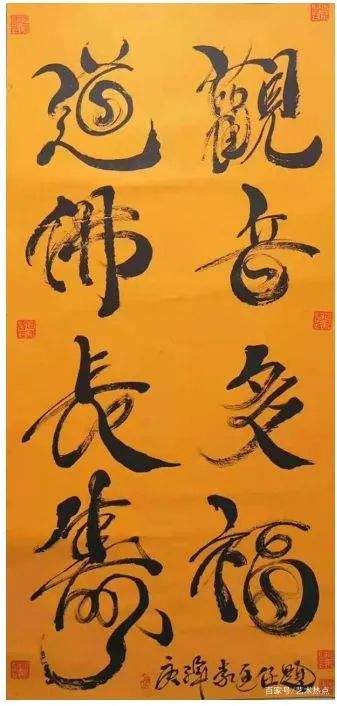 觀音多福
道佛長壽
百家号/艺术热点